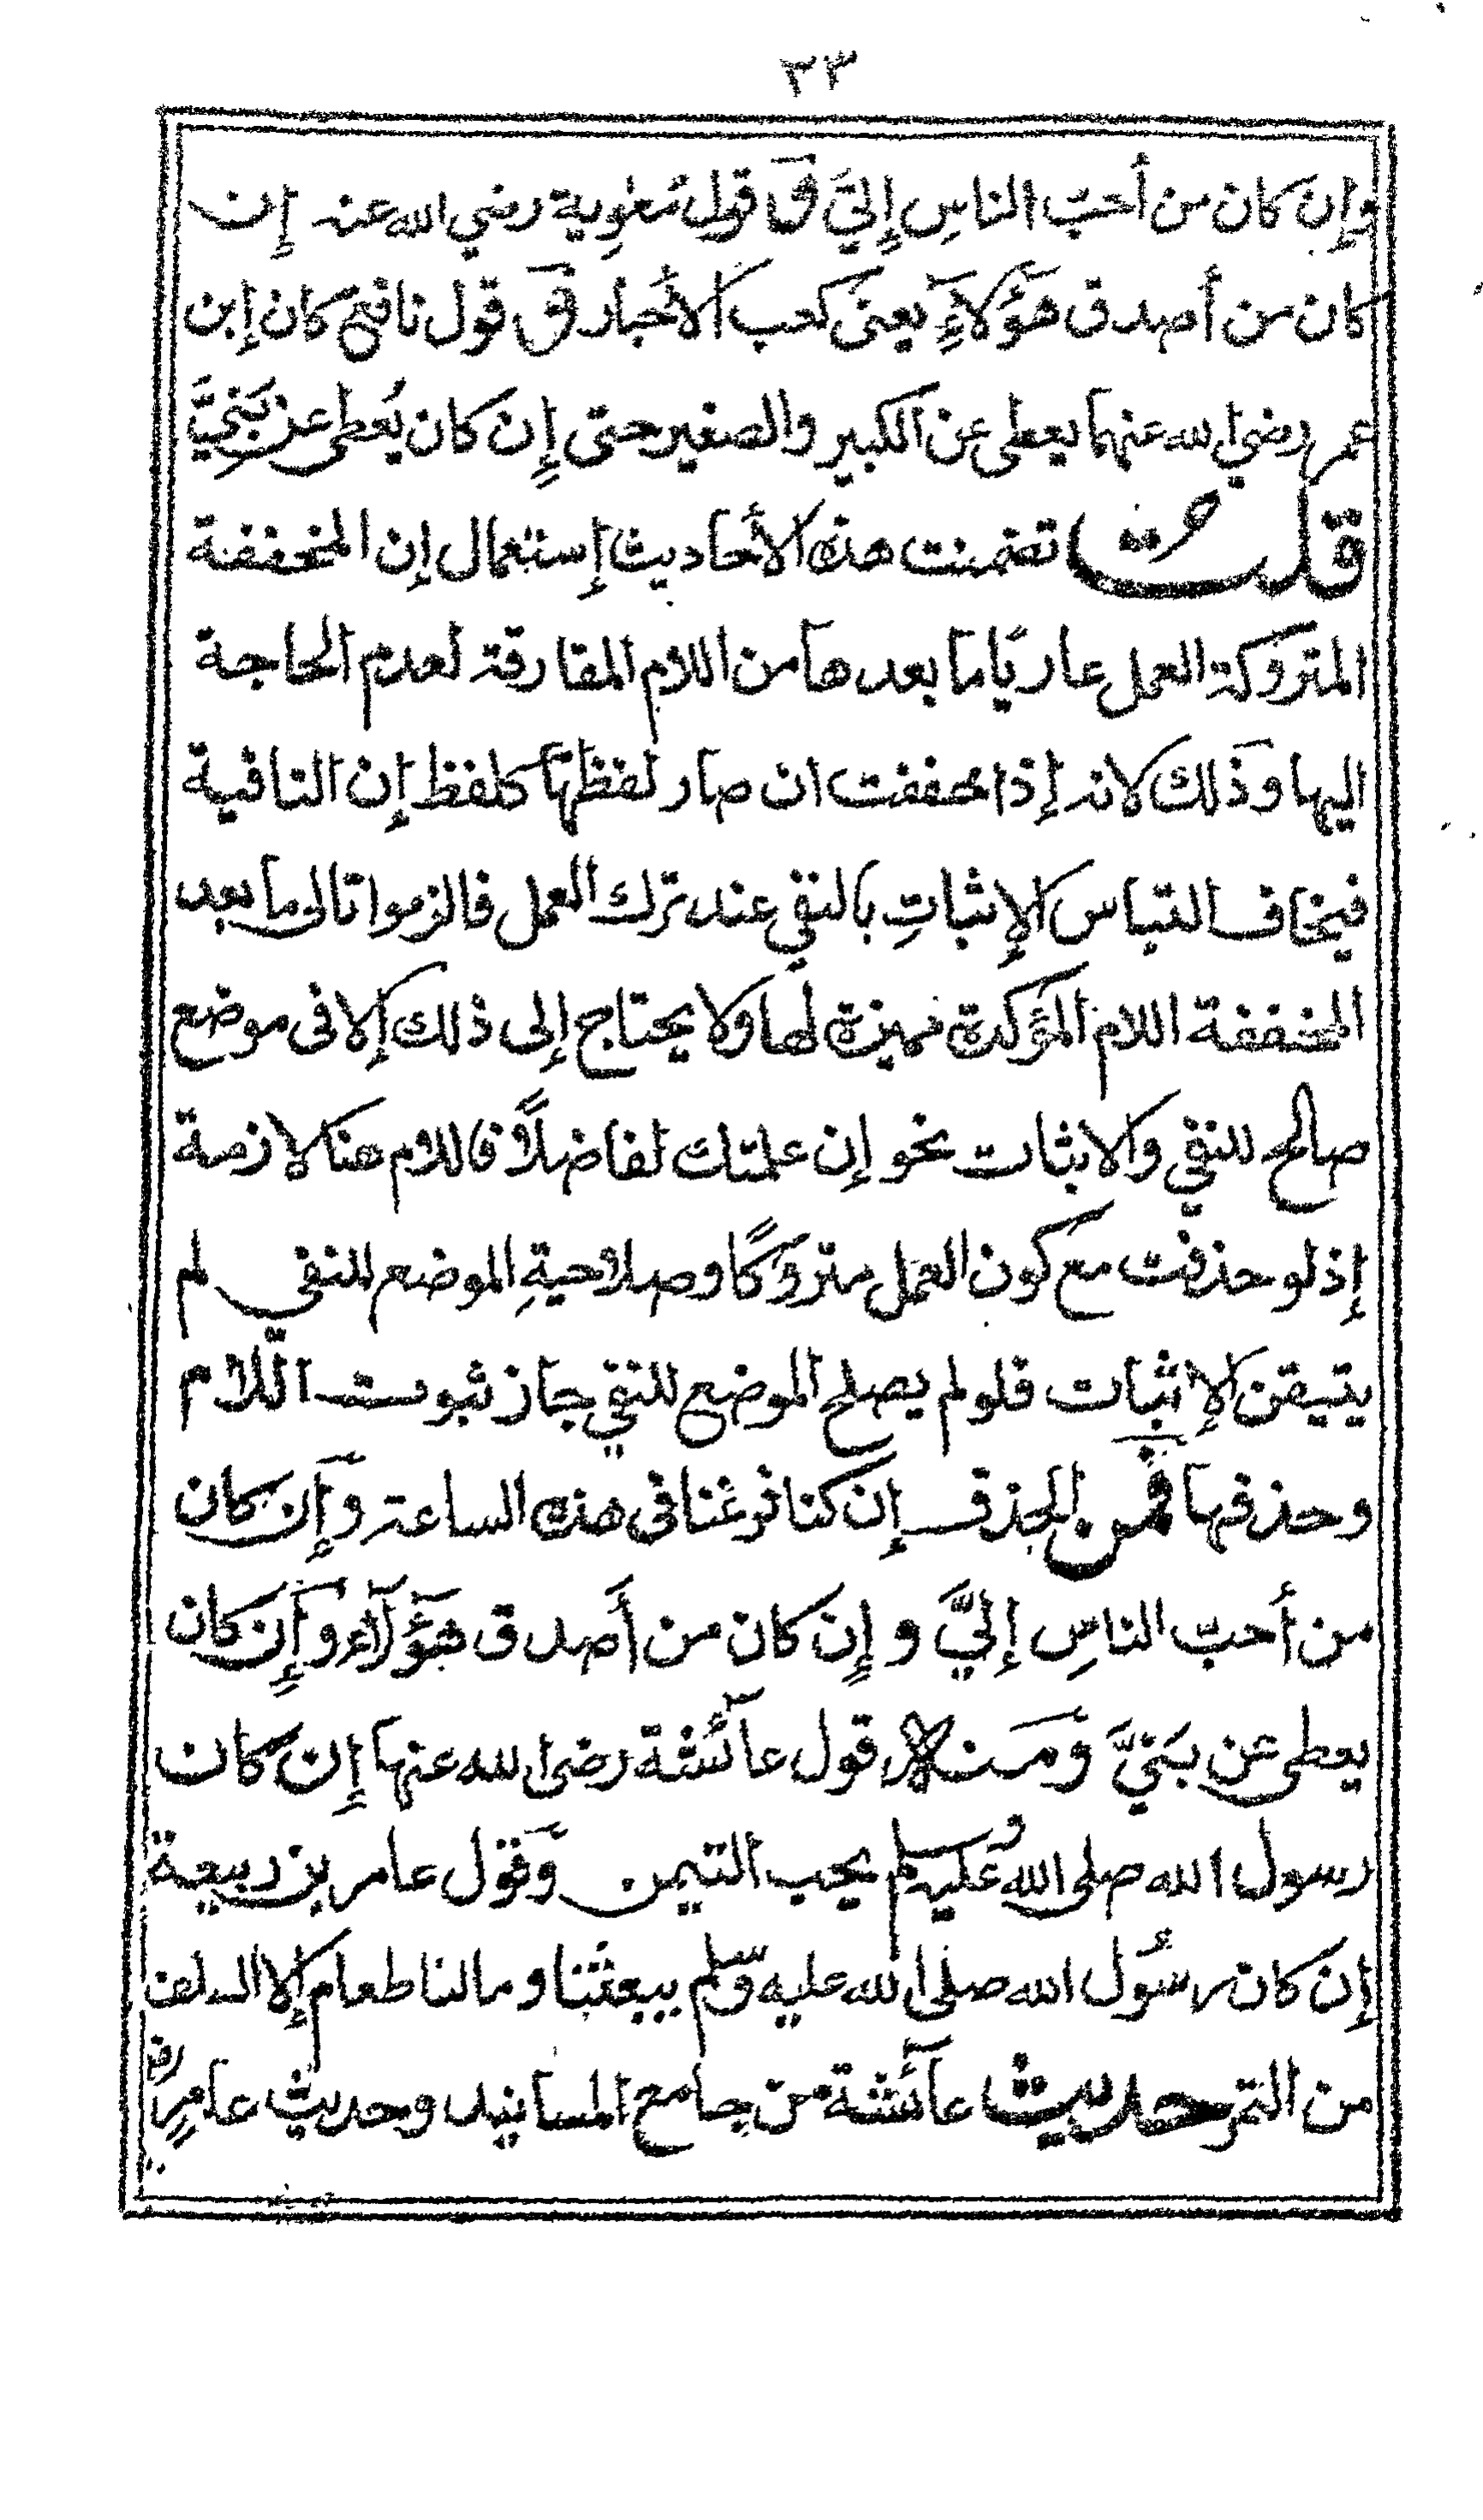 ٢٣
وإن كان من أحبّ الناسِ إليَّ وَفي قول مُعٰوِية رضي الله عنه إن
كان من أصدق هؤلاءِ يعنى كعب الأحبار وفي قول نافع كان إبن
عمر رضي الله عنهما يعطى عن الكبير والصغير حتى إن كان يُعطى عن بَنِيَّ
قلت تضمنت هذه الأحاديث إستعمال إن المخففة
المتروكة العمل عاريًا ما بعدها من اللام الفارقة لعدم الحاجة
اليها وذلك لانه إذا خففت ان صار لفظها كلفظ إن النافية
فيخاف التباس الإثباتِ بالنفي عند ترك العمل فالزموا تالى ما بعد
المخففة اللام المؤكدة مميزة لها ولا يحتاج إلى ذلك إلا فى موضع
صالح للنفي والاثبات نحو إن علمتك لفاضلاً فاللام هنا لازمة
إذ لو حذفت مع كون العمل متروكًا وصلاحيةِ الموضع للنفي لم
يتيقن الإثبات فلو لم يصلح الموضع للنفي جاز ثبوت اللام
وحذفها فمن الحذف إن كنا فرغنا فى هذه الساعة وإن كان
من أحبّ الناسِ إليَّ وإن كان من أصدق هؤلاء وإن كان
يعطى عن بَنِيَّ وَمن قول عائشة رضى الله عنها إن كان
رسول الله صلى الله عليه وسلم يحب التيمن وَقول عامر بن ربيعة
إن كان رسُول الله صلى الله عليه وسلم يبعثنا وما لنا طعام إلا السلف
من التمر حديث عائشة من جامع المسانيد وحديث عامرٍ